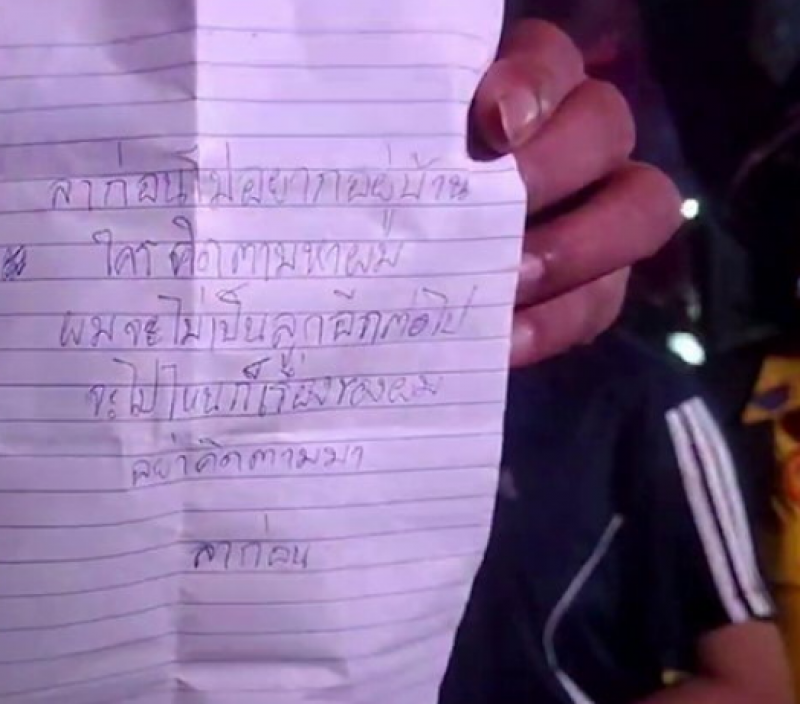 ลาก่อนไม่อยากอยู่บ้าน
ใครคิดตามหาผม
ผมจะไม่เป็นลูกอีกต่อไป
จะไปไหนก็เรื่องของผม
อย่าคิดตามมา
ลาก่อน